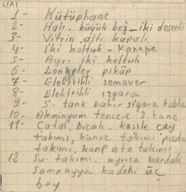 1 - Kütüphane
2 - Halı. büyük boy - iki desenli
3 - Vitrin, altı kapaklı
4 - iki koltuk - Kanape
5 - Ayrı iki koltuk
6 - pikap
7 - Elektrikli semaver
8 - Elektrikli ızgara
9 - 5. tane bakır sigara tabla
10 - Aleminyum tencere 2 tane
11 - Çatal, bıçak, kaşık çay
takımı, kahve takımı, pasta
takımı,
12 - Su takımı. ayrıca bardak
kadehi üç
boy